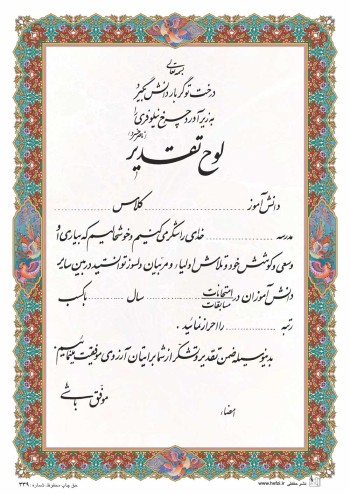 بسمه تعالی
درخت تو گر بار دانش بگیرد
به زیر آورد چرخ نیلوفری را
(ناصرخسرو)
لوح تقدیر
دانش آموز ............ کلاس ............
مدرسه ............ خدای را شکر می کنیم و خوشحالیم که بیاری او
وسعی و کوشش خود و تلاش اولیاء و مربیان دلسوز توانستید در بین سایر
دانش آموزان در امتحانات مسابقات ............ سال ............ با کسب
رتبه ............ را احراز نمائید.
بدینوسیله ضمن تقدیر و تشکر از شما برایتان آرزوی موفقیت می نمائیم.
موفق باشی
امضاء
حق چاپ محفوظ. شماره: ۳۳۹
www.hefzi.ir نشر حفظی